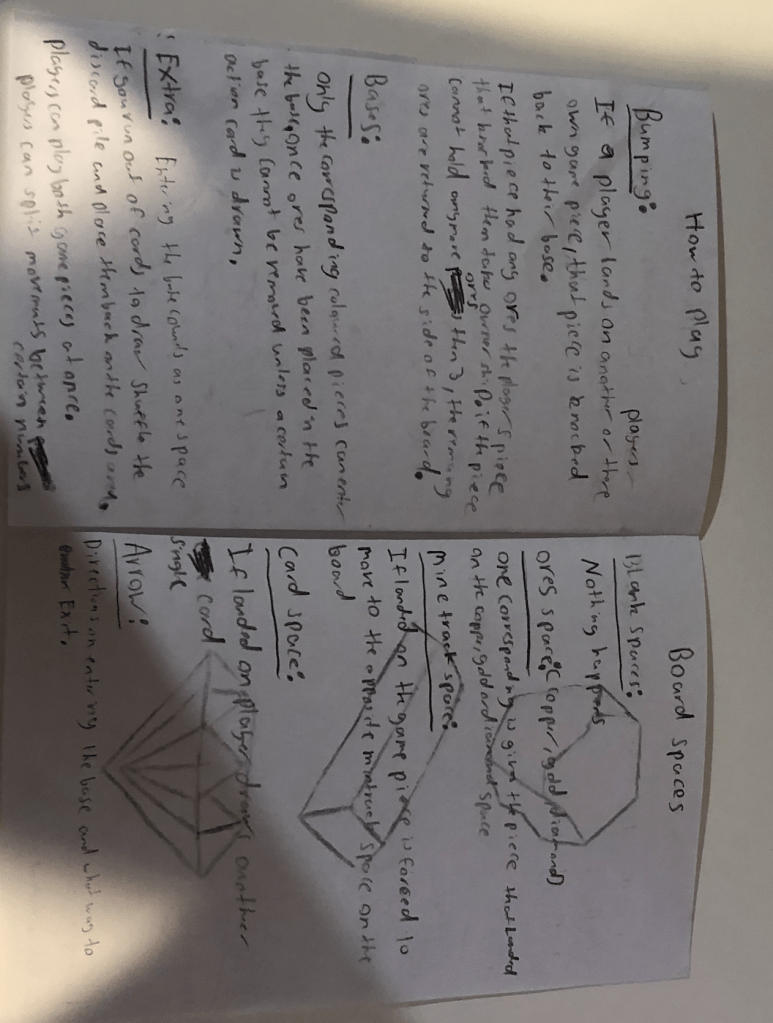 How to play
Bumping:
If a player lands on another or there
players
own game piece, that piece is knocked
back to their base.
If that piece had any ores the players piece
that knocked them take ownership. if the piece
ores
cannot hold anymore then 3, the remaing
ores are returned to the side of the board.
Bases:
Only the corresponding coloured pieces can enter
the base, once ores have been placed in the
base they cannot be removed unless a certain
action card is drawn.
Extra: Entering the base counts as one space
If you run out of cards to draw shuffle the
discard pile and place them back on the cards area.
players can play both game pieces at once.
players can split movements between
certain numbers
Board Spaces
Blank spaces:
Nothing happens
ores space: (copper, gold, diamond)
one corresponding is given the piece that landed
on the copper, gold and diamond space
mine track space:
If landed on the game piece is forced to
move to the opposite minetrack space on the
board
Card space:
If landed on player draws another
card
single
Arrow:
Directions on entering the base and what way to
Exit.